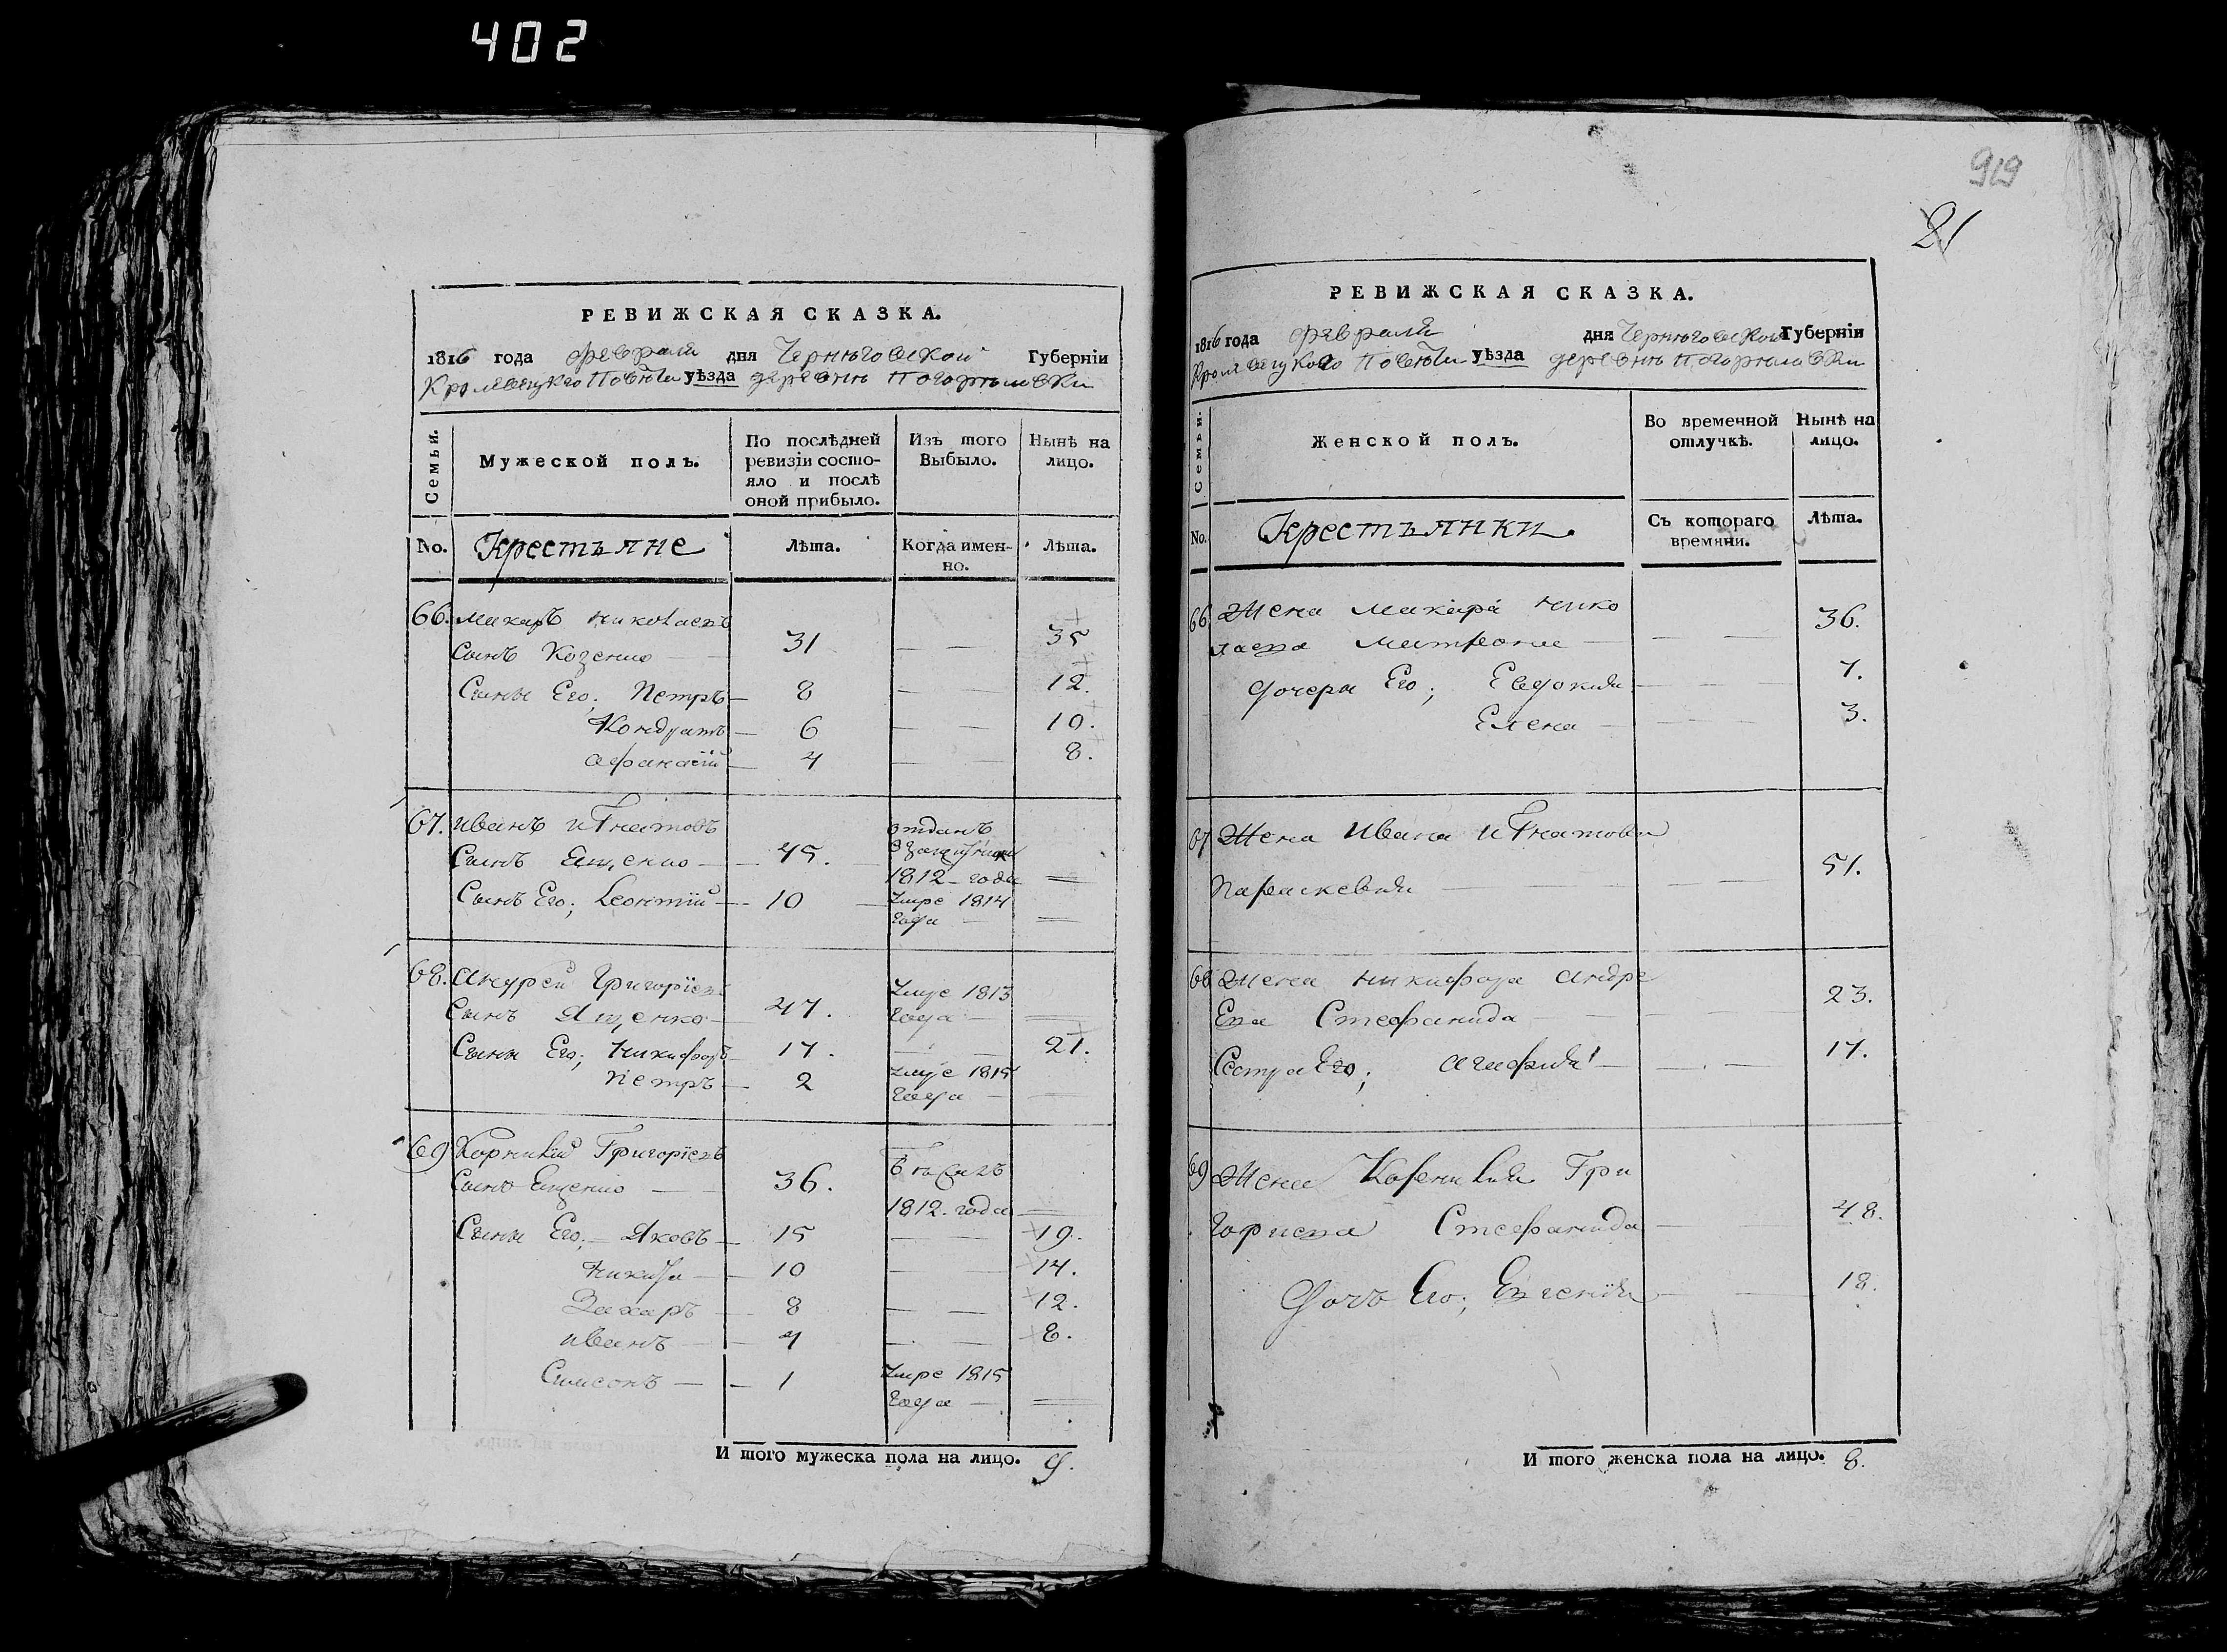 402
РЕВИЖСКАЯ СКАЗКА.
1816 года февраля дня Черниговской Губерніи
Кролевецкого Повета уѣзда деревни Погорѣловки
Семьи.
Мужеской полъ.
По послѣдней ревизіи состо-
яло и послѣ
оной прибыло.
Изъ того
Выбыло.
Нынѣ на
лицо.
No. Крестъяне Лѣта. Когда имен-
но. Лѣта.
66. Макаръ Николаевъ
Сынъ Козенко 31 35
Сыны Его; Петръ 8 12.
Кондратъ 6 10.
Афанасій 4 8.
67. Иванъ Игнатовъ отданъ
Сынъ Ященко 45. 1812 года
Сынъ Его; Леонтій 10 умре 1814
года
68. Андрей Григоріевъ умре 1813
Сынъ Ященко 47. года
Сыны Его; Никифоръ 17. 21.
Петръ 2 умре 1815
года
69 Корнилій Григоріевъ в бегахъ
Сынъ Ященко 36. 1812. года
Сыны Его; Яковъ 15 19.
Никита 10 14.
Захаръ 8 12.
Иванъ 4 8.
Самсонъ 1 умре 1815
года
И того мужеска пола на лицо. 9.
919
21
РЕВИЖСКАЯ СКАЗКА.
1816 года февраля дня Черниговской Губерніи
Кролевецкого Повета уѣзда деревни Погорѣловки
Семьи.
Женской полъ.
Во временной
отлучкѣ.
Нынѣ на
лицо.
No. Крестъянки. Съ котораго
времяни. Лѣта.
66. Жена Макара Нико
лаева Матрона 36.
Дочери Его; Евдокия 7.
Елена 3.
67 Жена Ивана Игнатова
Параскевия 51.
68 Жена Никифора Андре
Ева Стефанида 23.
Сестра Его; Агафия 17.
69 Жена Корнилия Гри
гориева Стефанида 48.
Дочь Его; Евгения 18.
И того женска пола на лицо. 8.